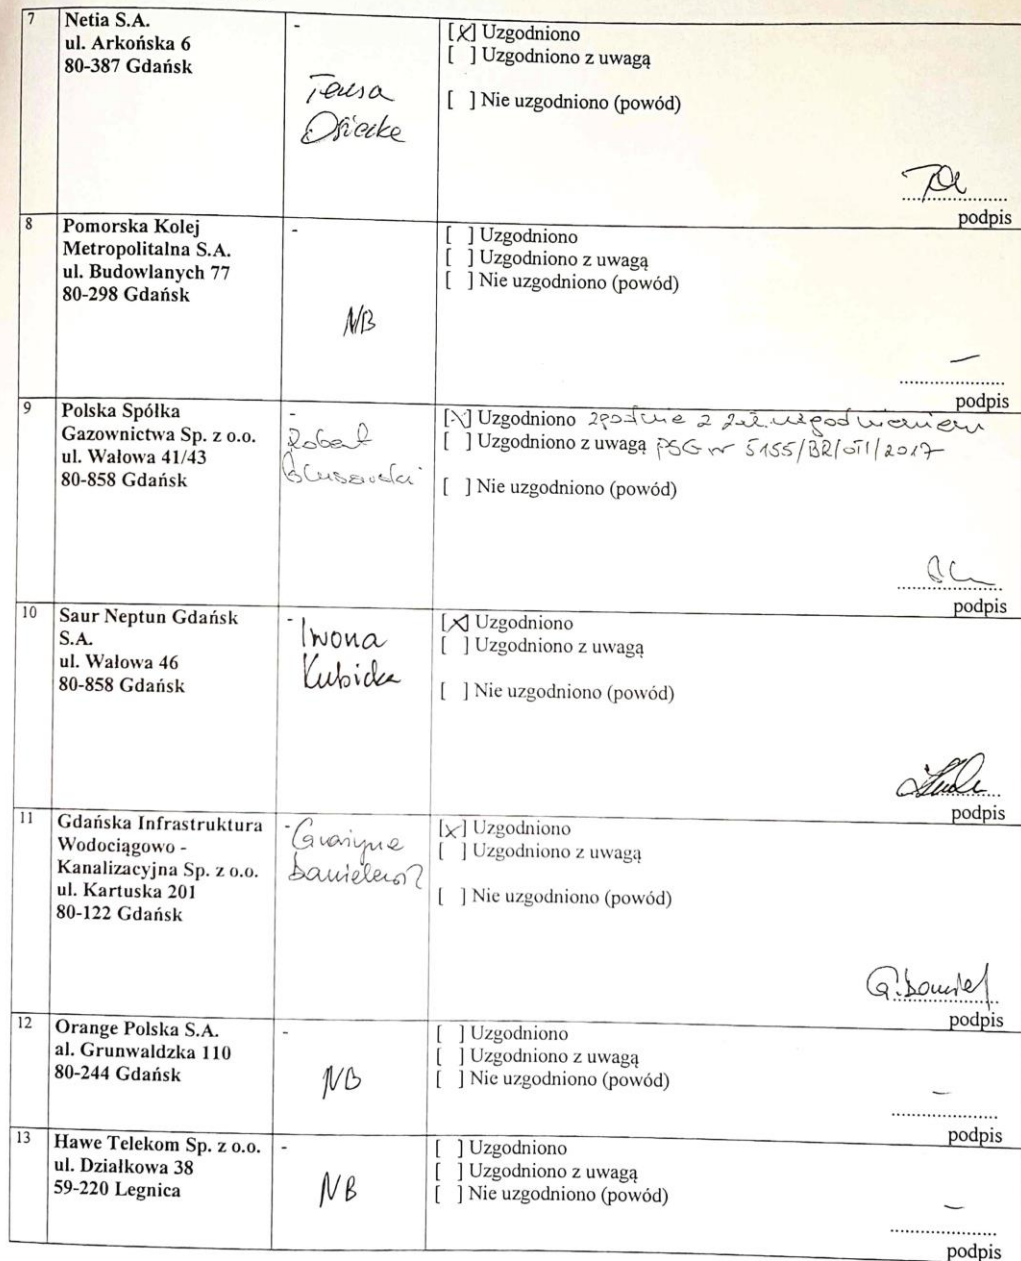 7
Netia S.A.
ul. Arkońska 6
80-387 Gdańsk
-
Teresa
[X] Uzgodniono
[ ] Uzgodniono z uwagą
[ ] Nie uzgodniono (powód)
podpis
8
Pomorska Kolej
Metropolitalna S.A.
ul. Budowlanych 77
80-298 Gdańsk
-
NB
[ ] Uzgodniono
[ ] Uzgodniono z uwagą
[ ] Nie uzgodniono (powód)
-
podpis
9
Polska Spółka
Gazownictwa Sp. z o.o.
ul. Wałowa 41/43
80-858 Gdańsk
-
Robert
[\] Uzgodniono zgodnie z zał. uzgodnieniem
[ ] Uzgodniono z uwagą PSG nr 5155/BR/OTI/2017
[ ] Nie uzgodniono (powód)
podpis
10
Saur Neptun Gdańsk
S.A.
ul. Wałowa 46
80-858 Gdańsk
-
Iwona
Kubicka
[X] Uzgodniono
[ ] Uzgodniono z uwagą
[ ] Nie uzgodniono (powód)
podpis
11
Gdańska Infrastruktura
Wodociągowo -
Kanalizacyjna Sp. z o.o.
ul. Kartuska 201
80-122 Gdańsk
-
Grażyna
[x] Uzgodniono
[ ] Uzgodniono z uwagą
[ ] Nie uzgodniono (powód)
podpis
12
Orange Polska S.A.
al. Grunwaldzka 110
80-244 Gdańsk
-
NB
[ ] Uzgodniono
[ ] Uzgodniono z uwagą
[ ] Nie uzgodniono (powód)
-
podpis
13
Hawe Telekom Sp. z o.o.
ul. Działkowa 38
59-220 Legnica
-
NB
[ ] Uzgodniono
[ ] Uzgodniono z uwagą
[ ] Nie uzgodniono (powód)
-
podpis